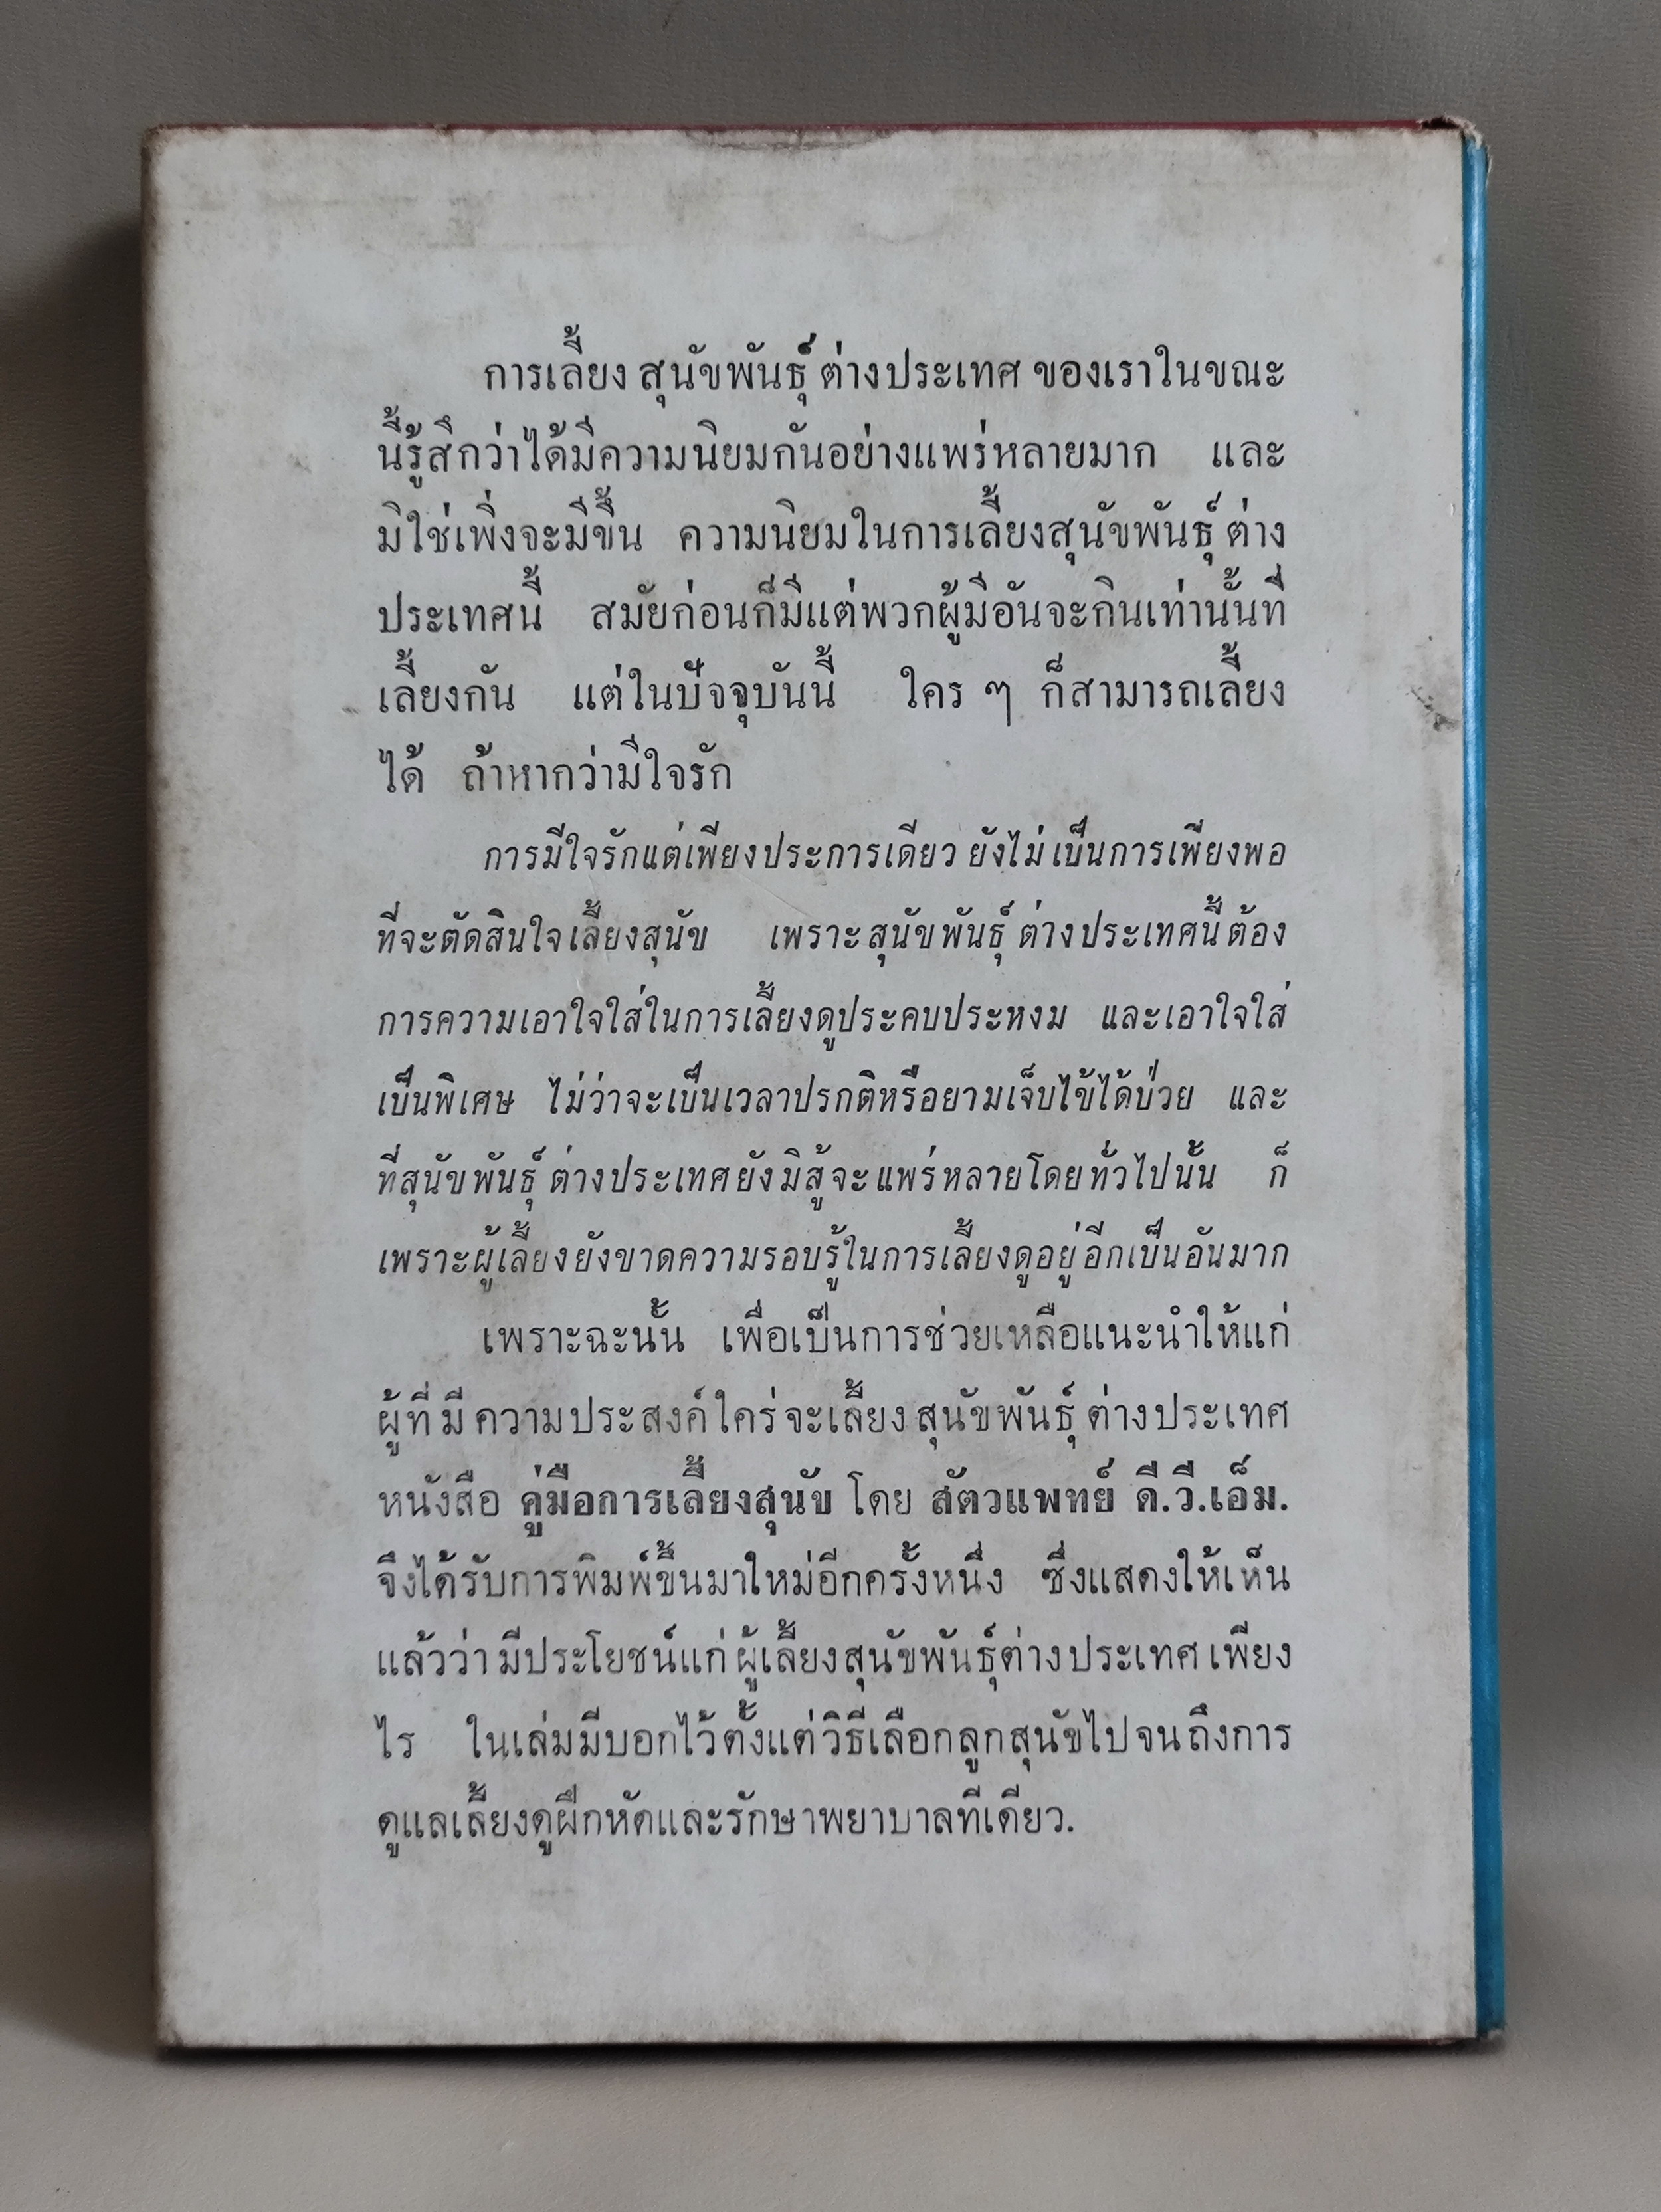 การเลี้ยง สุนัขพันธุ์ ต่างประเทศ ของเราในขณะ
นี้รู้สึกว่าได้มีความนิยมกันอย่างแพร่หลายมาก และ
มิใช่เพิ่งจะมีขึ้น ความนิยมในการเลี้ยงสุนัขพันธุ์ ต่าง
ประเทศนี้ สมัยก่อนก็มีแต่พวกผู้มีอันจะกินเท่านั้นที่
เลี้ยงกัน แต่ในปัจจุบันนี้ ใคร ๆ ก็สามารถเลี้ยง
ได้ ถ้าหากว่ามีใจรัก
การมีใจรักแต่เพียงประการเดียว ยังไม่เป็นการเพียงพอ
ที่จะตัดสินใจเลี้ยงสุนัข เพราะสุนัขพันธุ์ ต่างประเทศนี้ต้อง
การความเอาใจใส่ในการเลี้ยงดูประคบประหงม และเอาใจใส่
เป็นพิเศษ ไม่ว่าจะเป็นเวลาปรกติหรือยามเจ็บไข้ได้ป่วย และ
ที่สุนัขพันธุ์ ต่างประเทศยังมิสู้จะแพร่หลายโดยทั่วไปนั้น ก็
เพราะผู้เลี้ยงยังขาดความรอบรู้ในการเลี้ยงดูอยู่อีกเป็นอันมาก
เพราะฉะนั้น เพื่อเป็นการช่วยเหลือแนะนำให้แก่
ผู้ที่มีความประสงค์ใคร่จะเลี้ยงสุนัขพันธุ์ ต่างประเทศ
หนังสือ คู่มือการเลี้ยงสุนัข โดย สัตวแพทย์ ดี.วี.เอ็ม.
จึงได้รับการพิมพ์ขึ้นมาใหม่อีกครั้งหนึ่ง ซึ่งแสดงให้เห็น
แล้วว่ามีประโยชน์แก่ผู้เลี้ยงสุนัขพันธุ์ต่างประเทศเพียง
ไร ในเล่มมีบอกไว้ตั้งแต่วิธีเลือกลูกสุนัขไปจนถึงการ
ดูแลเลี้ยงดูฝึกหัดและรักษาพยาบาลทีเดียว.